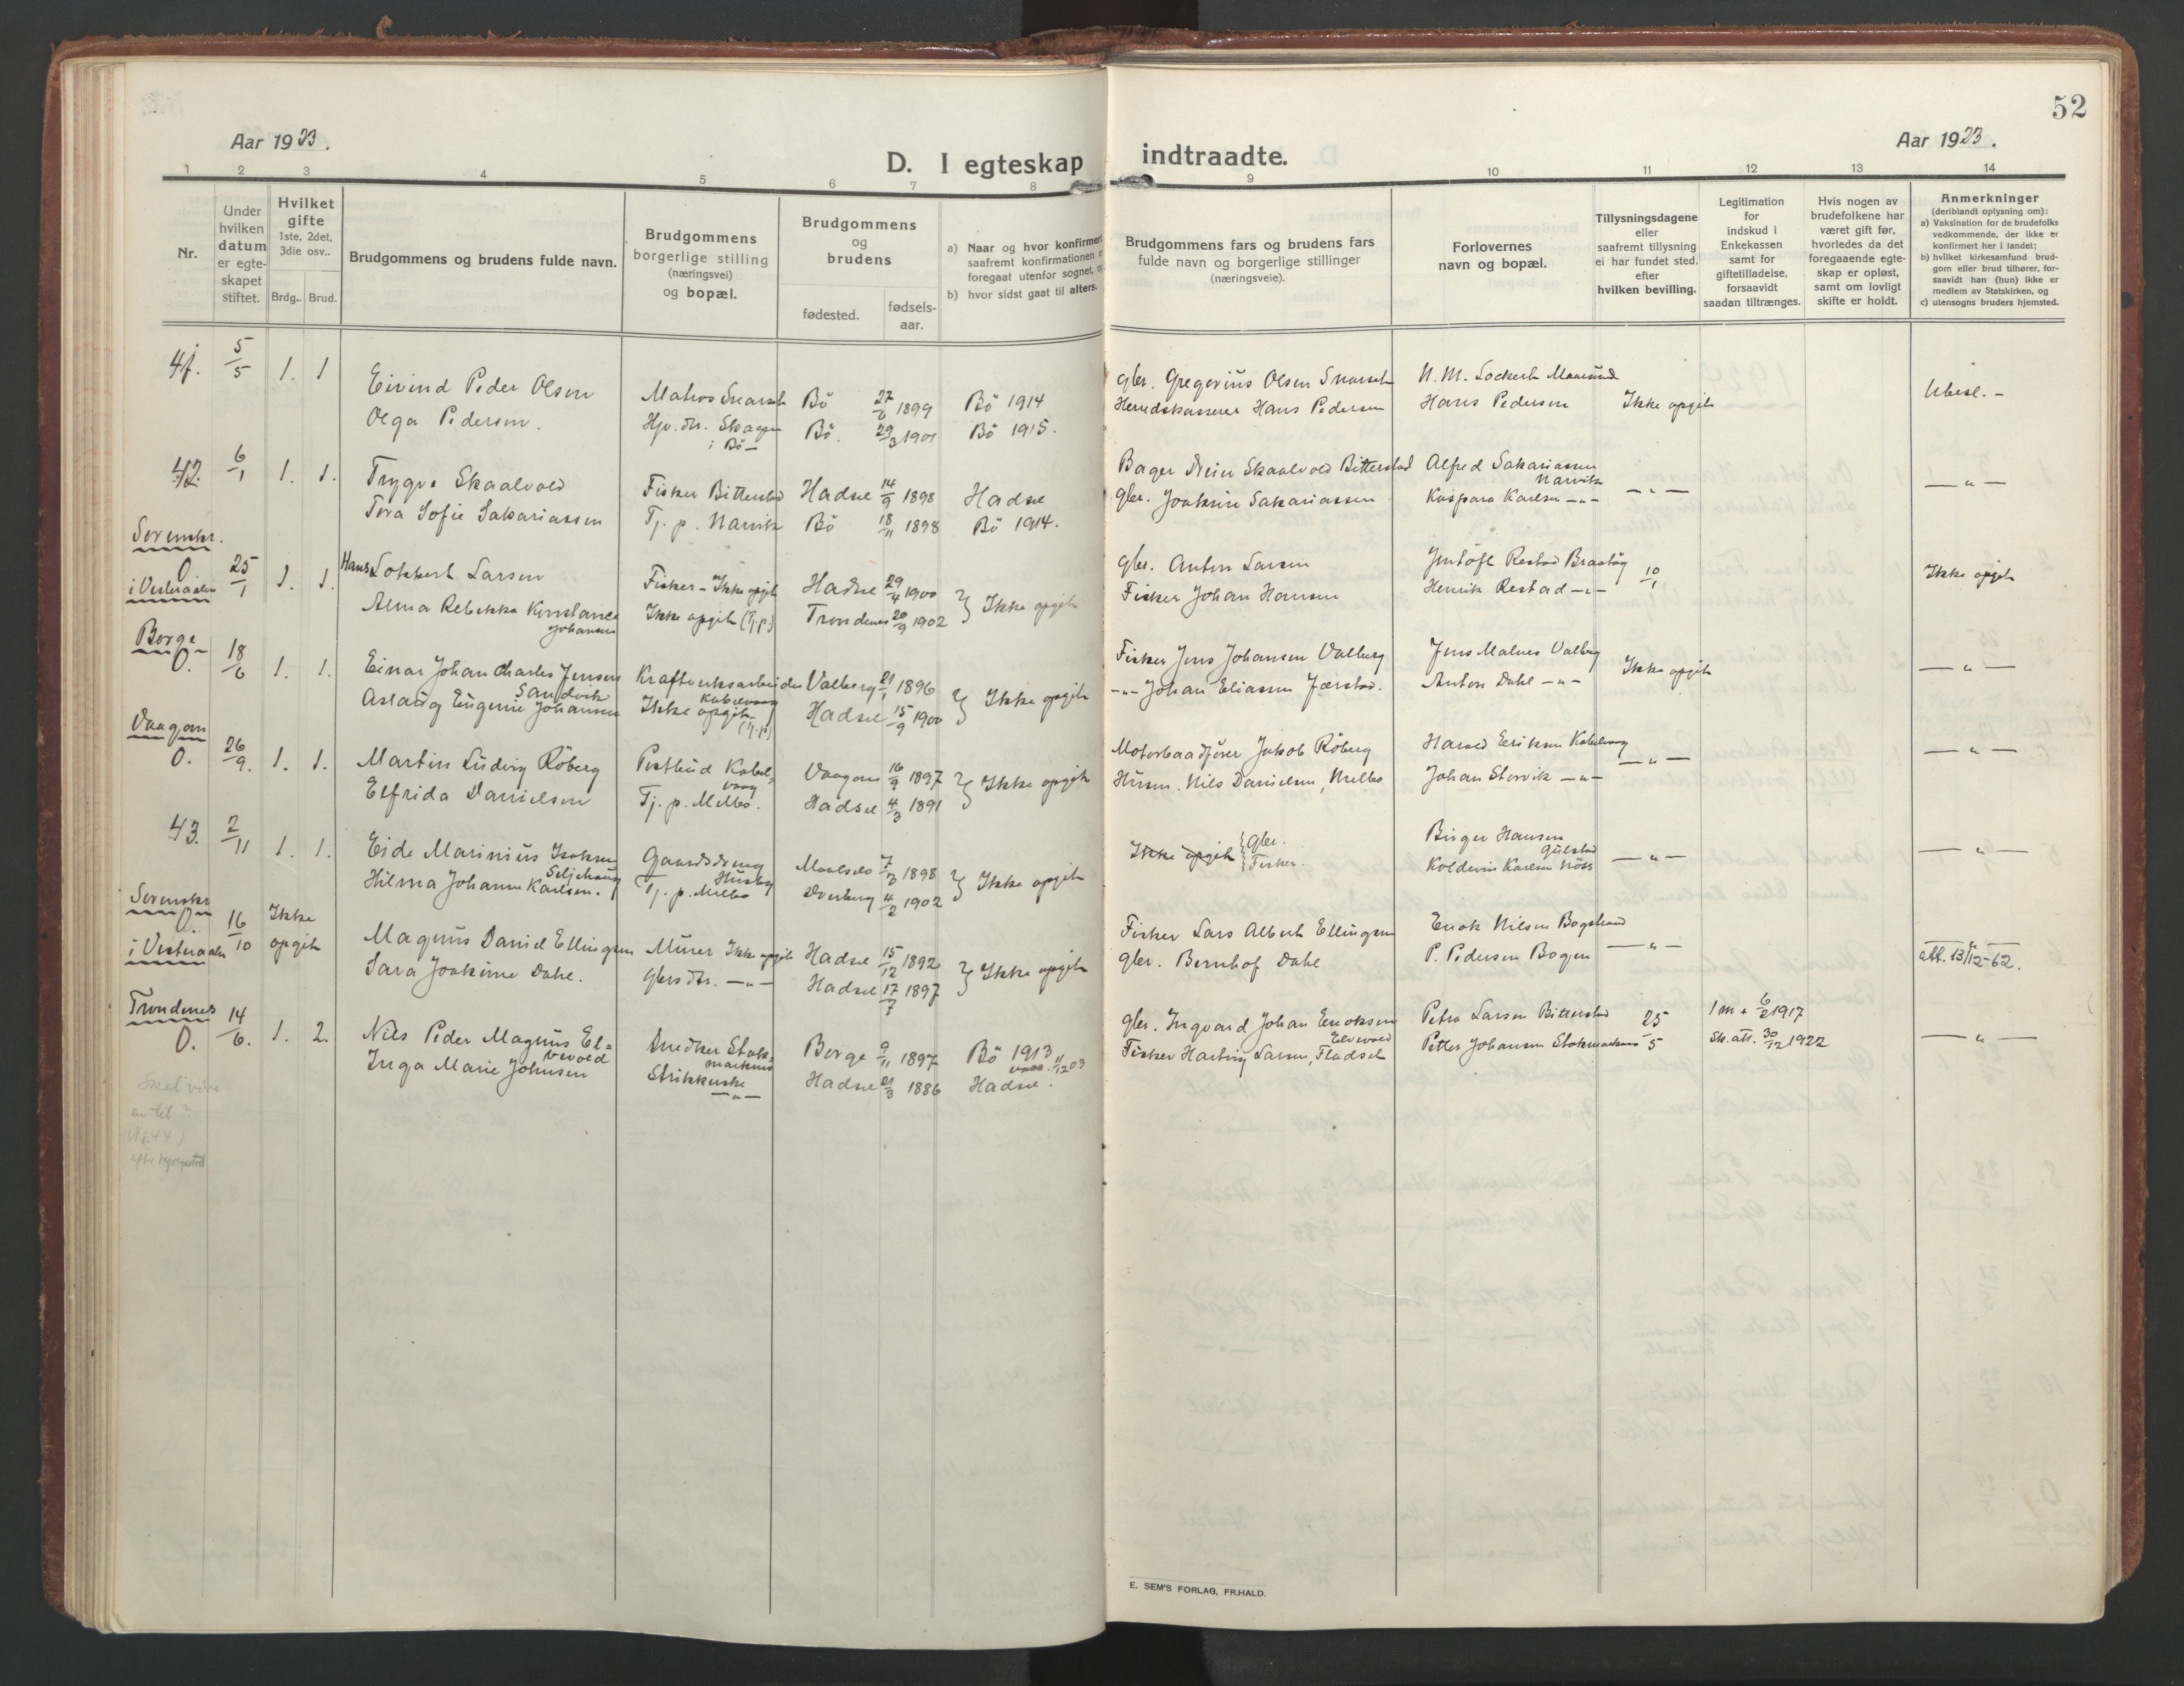 52
Aar 1923.
Aar 1923.
D. I egteskap indtraadte.
1 2 3 4 5 6 7 8 9 10 11 12 13 14
Nr.
Under
hvilken
datum
er egte-
skapet
stiftet.
Hvilket
gifte
1ste, 2det,
3die osv..
Brdg.. Brud.
Brudgommens og brudens fulde navn.
Brudgommens
borgerlige stilling
(næringsvei)
og bopæl.
Brudgommens
og
brudens
fødested.
fødsels-
aar.
a) Naar og hvor konfirmert
saafremt konfirmationen
foregaat utenfor sognet,
b) hvor sidst gaat til alters.
Brudgommens fars og brudens fars
fulde navn og borgerlige stillinger
(næringsveie).
Forlovernes
navn og bopæl.
Tillysningsdagene
eller
saafremt tillysning
ei har fundet sted,
efter
hvilken bevilling.
Legitimation
for
indskud i
Enkekassen
samt for
giftetilladelse,
forsaavidt
saadan tiltrænges.
Hvis nogen av
brudefolkene har
været gift før,
hvorledes da det
foregaaende egte-
skap er opløst,
samt om lovligt
skifte er holdt.
Anmerkninger
(deriblandt oplysning om):
a) Vaksination for de brudefolks
vedkommende, der ikke er
konfirmert her i landet;
b) hvilket kirkesamfund brud-
gom eller brud tilhører, for-
saavidt han (hun) ikke er
medlem av Statskirken, og
c) utensogns bruders hjemsted.
41. 5/5 1. 1
Eivind Peder Olsen Matros Snarset Bö 1899 Bö 1914 gbr. Gregorius Olsen Snarset
Olga Pedersen. Skagen Bö. 29/3 1901 Bö 1915. Herredskasserer Hans Pedersen Hans Pedersen Ikke opgit
i Bö –
42. 6/1 1. 1.
Trygve Skaalvold Fisker Bitterstad Hadsel 14/9 1898 Hadsel Bager Skaalvold Bitterstad Alfred Sakariassen
Narvik
Tora Sofie Sakariassen Tj. p. Narvik Bö 18/11 1898 Bö 1914. gbr. Joakim Sakariassen Kaspara Karlsen –"– –"– –"–
i Vesteraalen
O. 25/1 1. 1.
Hans Lokkert Larsen Fisker – Ikke opgit Hadsel 29/4 1900 gbr. Anton Larsen 10/1 Ikke opgit
Anna Rebekka Konstance Johansen Ikke opgit (Tj.p) Trondenes 20/9 1902 } Ikke opgit Fisker Johan Hansen Henrik Restad –"–
Borge
O. 18/6 1. 1.
Einar Johan Charles Jensen Sandvik Kraftverksarbeider Kabelvaag Valberg 21/1 1896 Fisker Jens Johansen Valberg Jens Malnes Valberg Ikke opgit –"–
Aslaug Eugenie Johansen Ikke opgit (Tj.p) Hadsel 15/9 1900 } Ikke opgit –"– Johan Eliassen Jærstad. Anton Dahl –"–
Vaagan
O. 26/9. 1. 1.
Martin Ludvig Röberg Postbud Kabelvaag Vaagan 16/9 1897 Motorbaadfører Jakob Röberg Harald Eriksen Kabelvaag –"– –"–
Elfrida Danielsen Tj. p. Melbo. Hadsel 4/3 1891 } Ikke opgit Husm. Nils Danielsen, Melbo Johan Storvik –"–
43. 2/11 1. 1.
Eide Marinius Isaksen Seljehaug Gaardsdreng Husby 7/3 1898 Ikke opgit { Gbr. Birger Hansen Gulstad
Hilma Johanne Karlsen. Tj. p. Melbo Dverberg 4/2 1902 } Ikke opgit { Fisker. Koldevin Karlsen Höss –"– –"–
i Vesteraalen
O. 16/10 Ikke opgit
Magnus Daniel Ellingsen Murer Ikke opgit Hadsel 15/12 1892 Fisker Lars Albert Ellingsen Enok Nilsen Bogstrand –"– –"–
Sara Joakime Dahl. Gbrs dtr. –"– Hadsel 17/7 1897 } Ikke opgit gbr. Bernhof Dahl P. Pedersen Bogen att. 13/12-62.
Trondenes
O. 14/6. 1. 2.
Nils Peder Magnus Elvevold Snedker Stokmarknes Borge 9/11 1897 Bö 1913 gbr. Ingvard Johan Enoksen Elvevold Petra Larsen Bitterstad 25/5 6/2 1917
Inga Marie Johnsen Strikkerske –"– Hadsel 21/3 1886 Hadsel. Fisker Hartvig Larsen, Fladset Petter Johansen Stokmarknes Sk. att. 30/12 1922 –"–
Skal være
en til
(Nr. 44)
E. SEM'S FORLAG, FR.HALD.